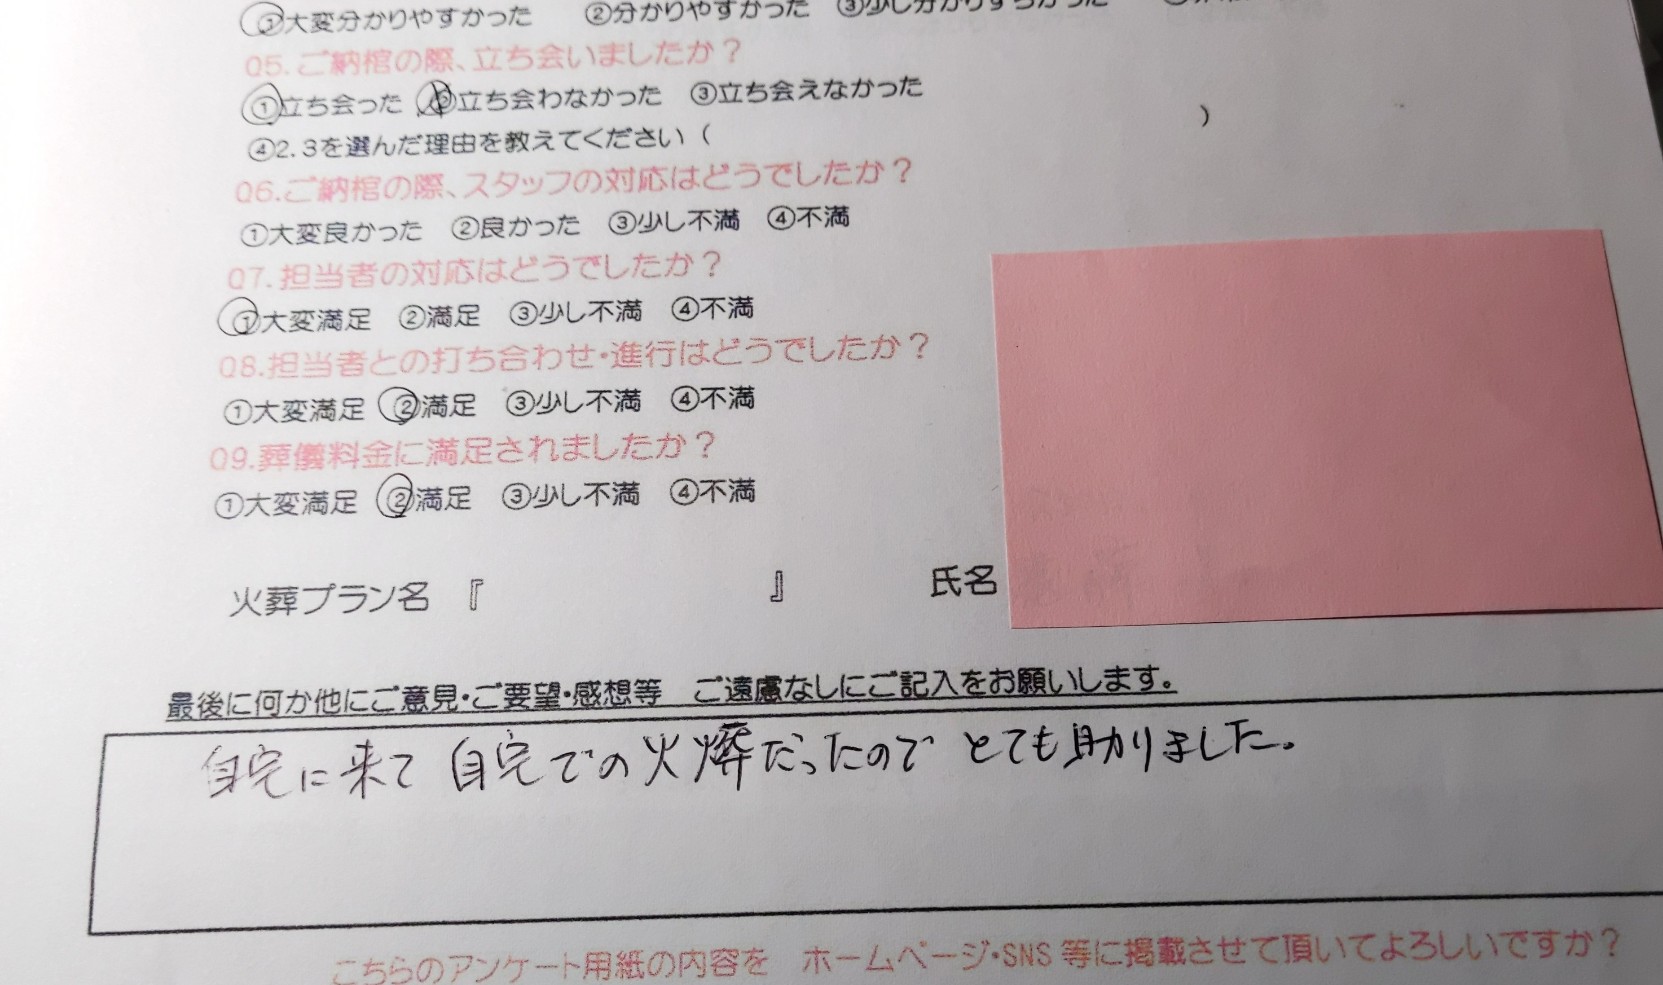 ①大変分かりやすかった ②分かりやすかった ③少し分かりずらかった
Q5.ご納棺の際、立ち会いましたか？
①立ち会った ②立ち会わなかった ③立ち会えなかった
④2.3を選んだ理由を教えてください（ ）
Q6.ご納棺の際、スタッフの対応はどうでしたか？
①大変良かった ②良かった ③少し不満 ④不満
Q7.担当者の対応はどうでしたか？
①大変満足 ②満足 ③少し不満 ④不満
Q8.担当者との打ち合わせ・進行はどうでしたか？
①大変満足 ②満足 ③少し不満 ④不満
Q9.葬儀料金に満足されましたか？
①大変満足 ②満足 ③少し不満 ④不満
火葬プラン名 『 』 氏名
最後に何か他にご意見・ご要望・感想等 ご遠慮なしにご記入をお願いします。
自宅に来て自宅での火葬だったので とても助かりました。
こちらのアンケート用紙の内容を ホームページ・SNS等に掲載させて頂いてよろしいですか？